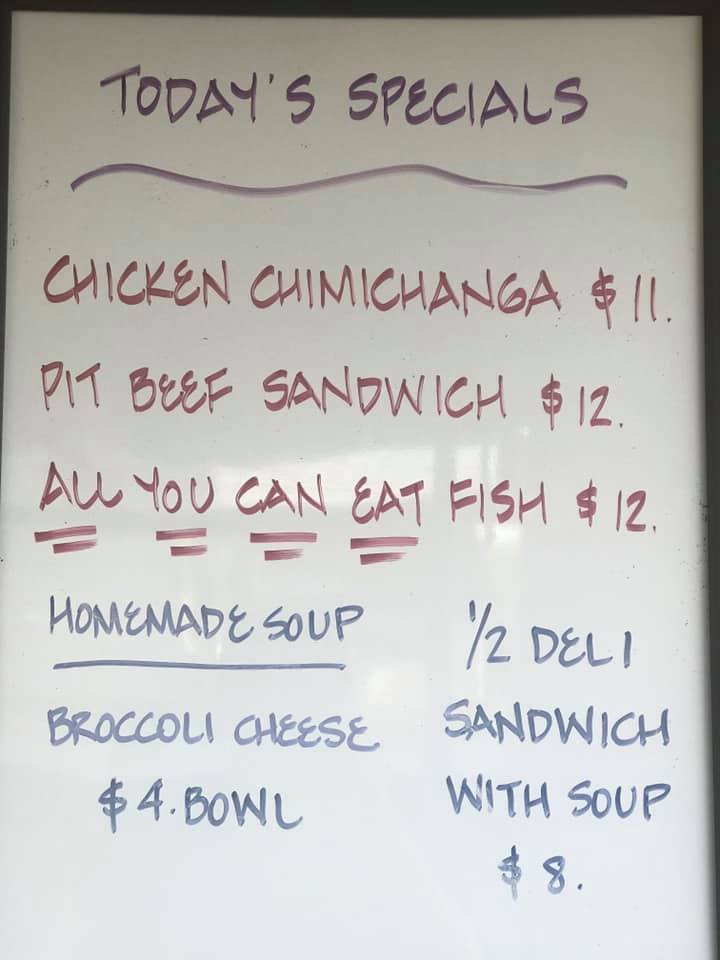 TODAY'S SPECIALS
CHICKEN CHIMICHANGA $11.
PIT BEEF SANDWICH $12.
ALL YOU CAN EAT FISH $12.
HOMEMADE SOUP
BROCCOLI CHEESE
$4. BOWL
1/2 DELI
SANDWICH
WITH SOUP
$8.